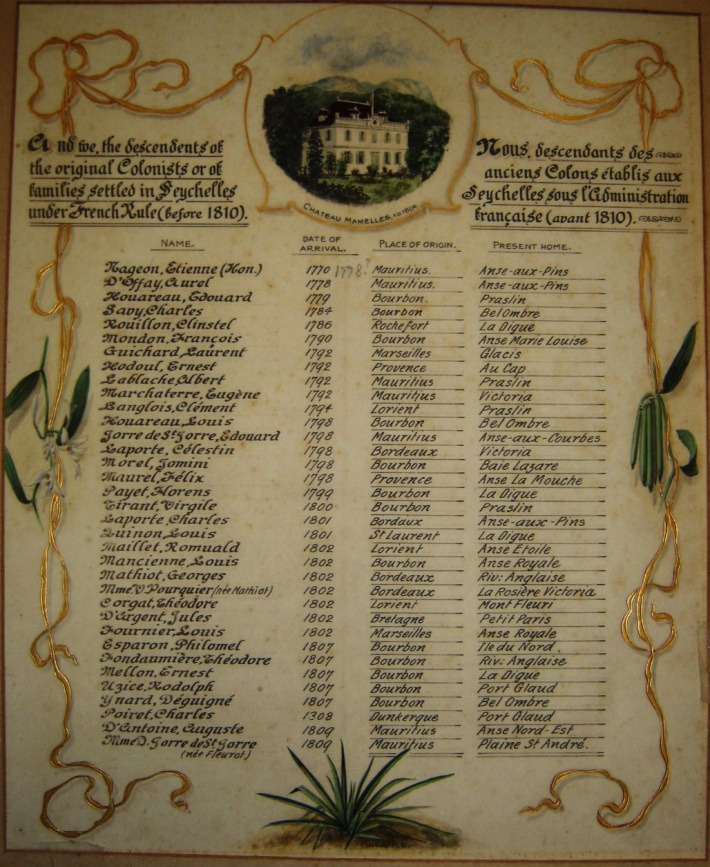 And we, the descendents of
the original Colonists or of
families settled in Seychelles
under French Rule (before 1810).
CHATEAU MAMELLES, AD 1804
Nous, descendants des
anciens Colons établis aux
Seychelles sous l'Administration
française (avant 1810).
NAME. DATE OF ARRIVAL. PLACE OF ORIGIN. PRESENT HOME.
Nageon, Etienne (Hon.) 1770 1778? Mauritius. Anse-aux-Pins
D'Offay, Aurel 1778 Mauritius. Anse-aux-Pins
Houareau, Edouard 1779 Bourbon. Praslin
Savy, Charles 1784 Bourbon Bel Ombre
Rouillon, Clinstel 1786 Rochefort La Digue
Mondon, François 1790 Bourbon Anse Marie Louise
Guichard, Laurent 1792 Marseilles Glacis
Hodoul, Ernest 1792 Provence Au Cap
Lablache, Albert 1792 Mauritius Praslin
Marchaterre, Eugène 1792 Mauritius Victoria
Langlois, Clément 1794 Lorient Praslin
Houareau, Louis 1798 Bourbon Bel Ombre
Jorre de St Jorre, Edouard 1798 Mauritius Anse-aux-Courbes
Laporte, Célestin 1798 Bordeaux Victoria
Morel, Jomini 1798 Bourbon Baie Lazare
Maurel, Félix 1798 Provence Anse La Mouche
Payet, Florens 1799 Bourbon La Digue
Tirant, Virgile 1800 Bourbon Praslin
Laporte Charles 1801 Bordaux Anse-aux-Pins
Louis 1801 St Laurent La Digue
Maillet, Romuald 1802 Lorient Anse Etoile
Mancienne, Louis 1802 Bourbon Anse Royale
Mathiot, Georges 1802 Bordeaux Riv: Anglaise
Mme V. Pourquier (née Mathiot) 1802 Bordeaux La Rosière Victoria
Corgat, Théodore 1802 Lorient Mont Fleuri
D'Argent, Jules 1802 Bretagne Petit Paris
Fournier, Louis 1802 Marseilles Anse Royale
Esparon, Philomel 1807 Bourbon Ile du Nord.
Fondaumière, Théodore 1807 Bourbon Riv: Anglaise
Mellon, Ernest 1807 Bourbon La Digue
Uzice, Rodolph 1807 Bourbon Port Glaud
Ynard, Déguigné 1807 Bourbon Bel Ombre
Poiret, Charles 1308 Dunkerque Port Glaud
D'Antoine, Auguste 1809 Mauritius Anse Nord-Est
Mme D. Jorre de St Jorre 1809 Mauritius Plaine St André.
(née Fleurot)